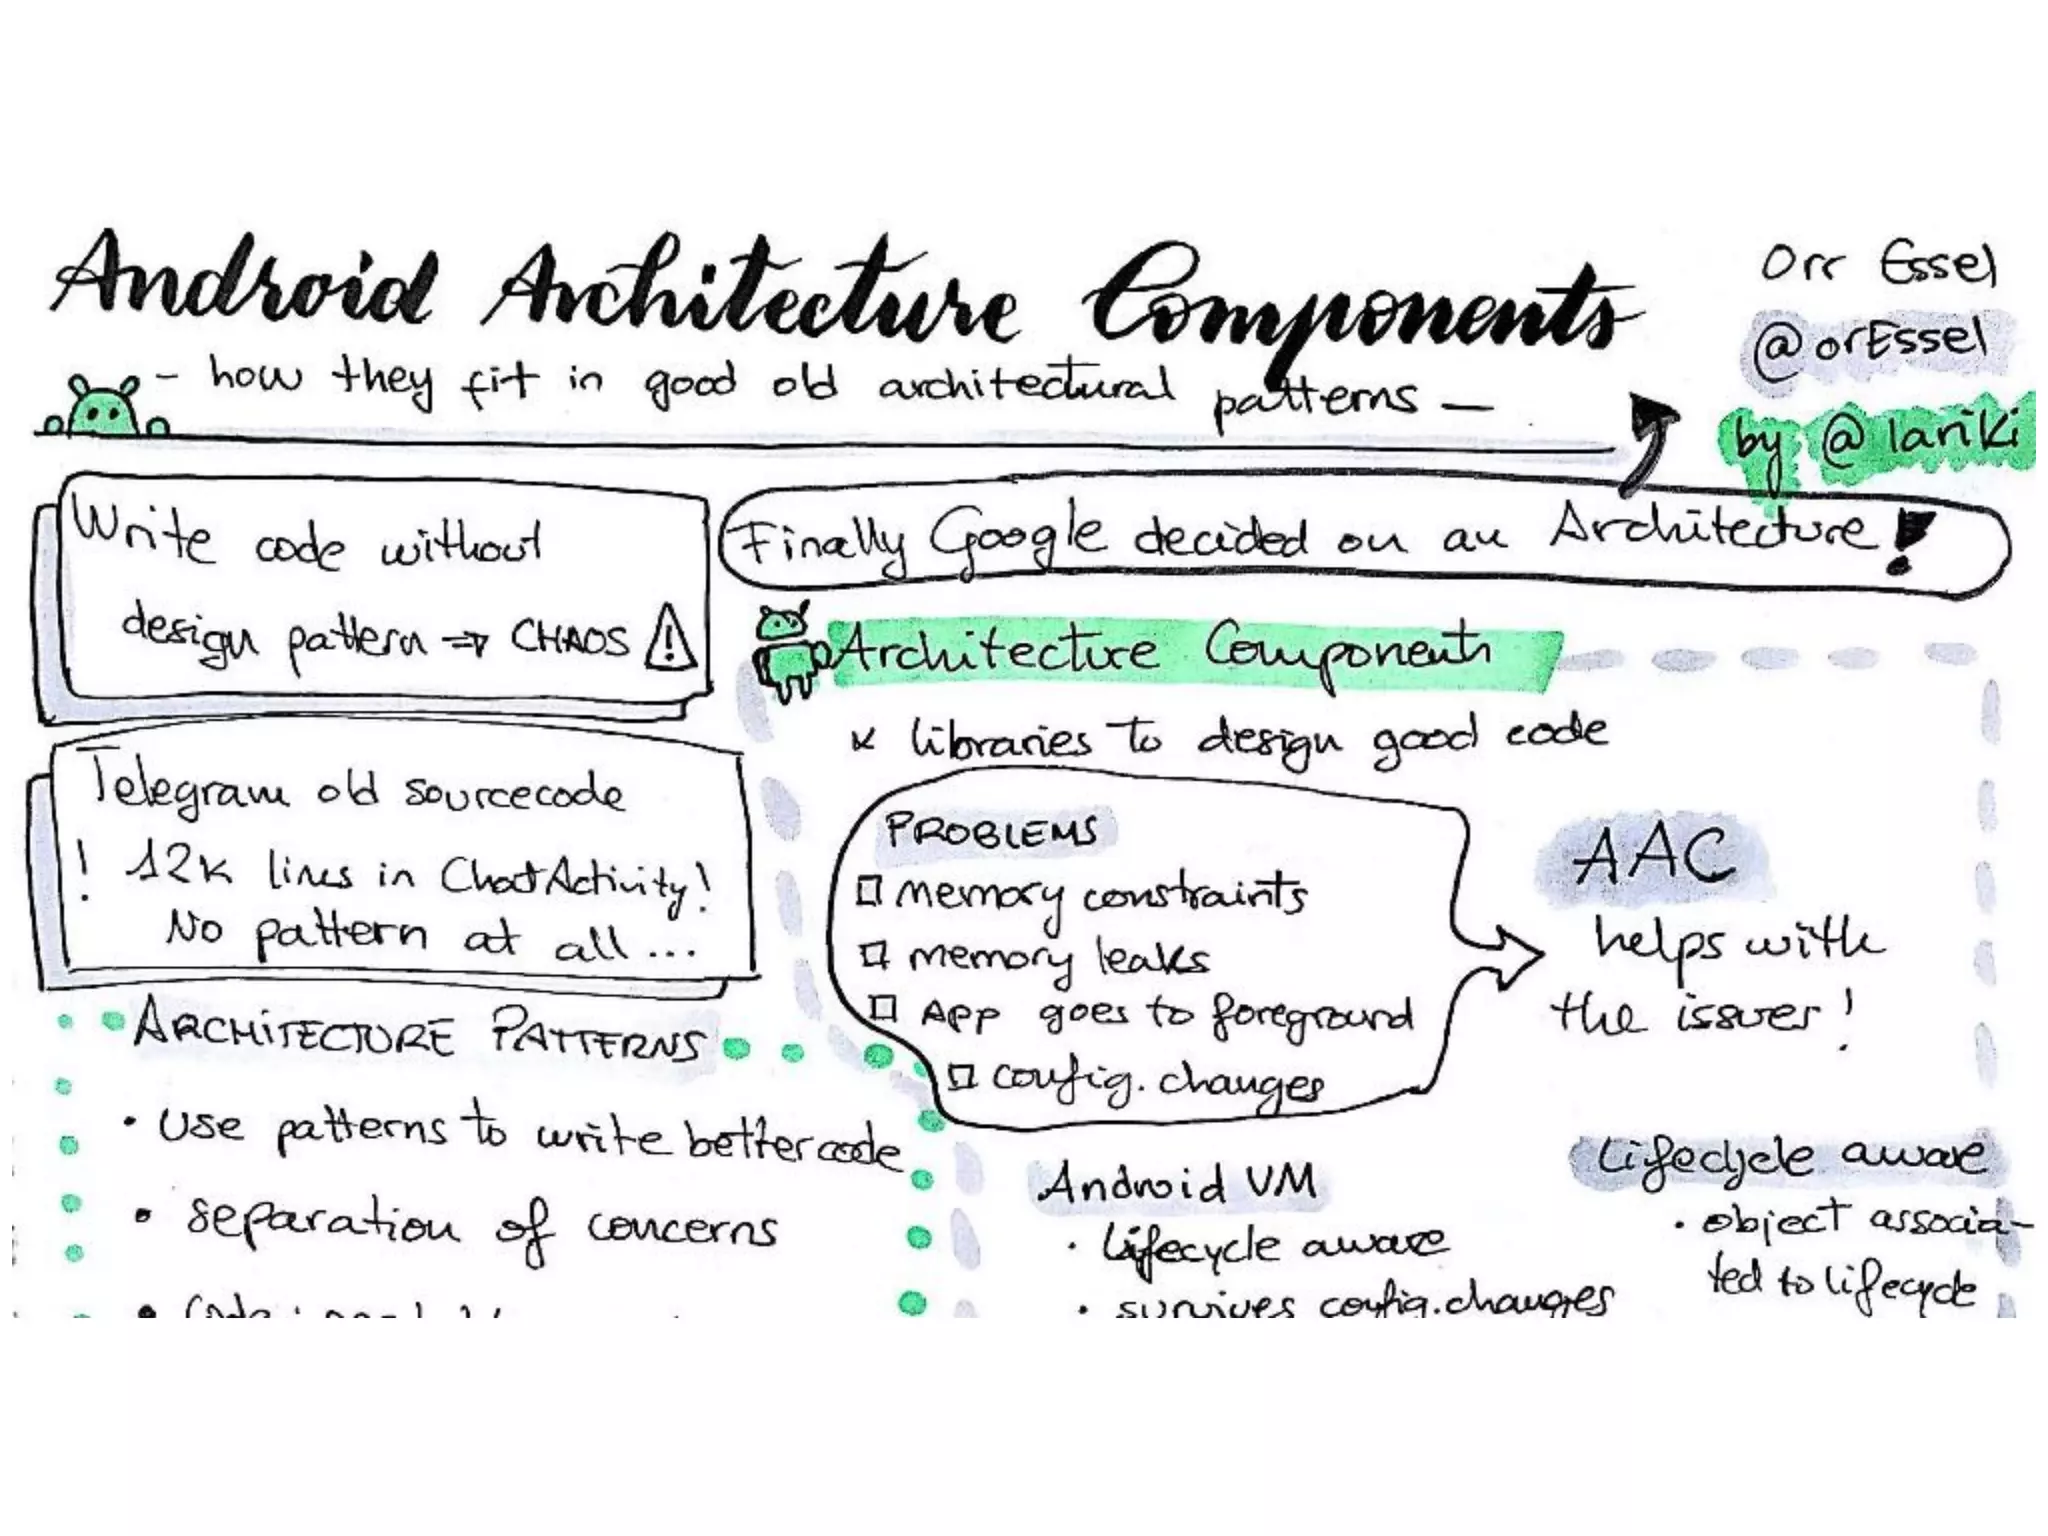 Android Architecture Components
- how they fit in good old architectural patterns -
Orr Essel
@orEssel
by @lariki
Write code without
design pattern => CHAOS
Finally Google decided on an Architecture!
Telegram old sourcecode
! 12k lines in ChatActivity!
No pattern at all...
Architecture Components
libraries to design good code
PROBLEMS
memory constraints
memory leaks
App goes to foreground
config. changes
AAC
helps with
the issues!
ARCHITECTURE PATTERNS
• Use patterns to write better code
• separation of concerns
Android VM
• Lifecycle aware
• survives config. changes
Lifecycle aware
• object associa-
ted to lifecycle